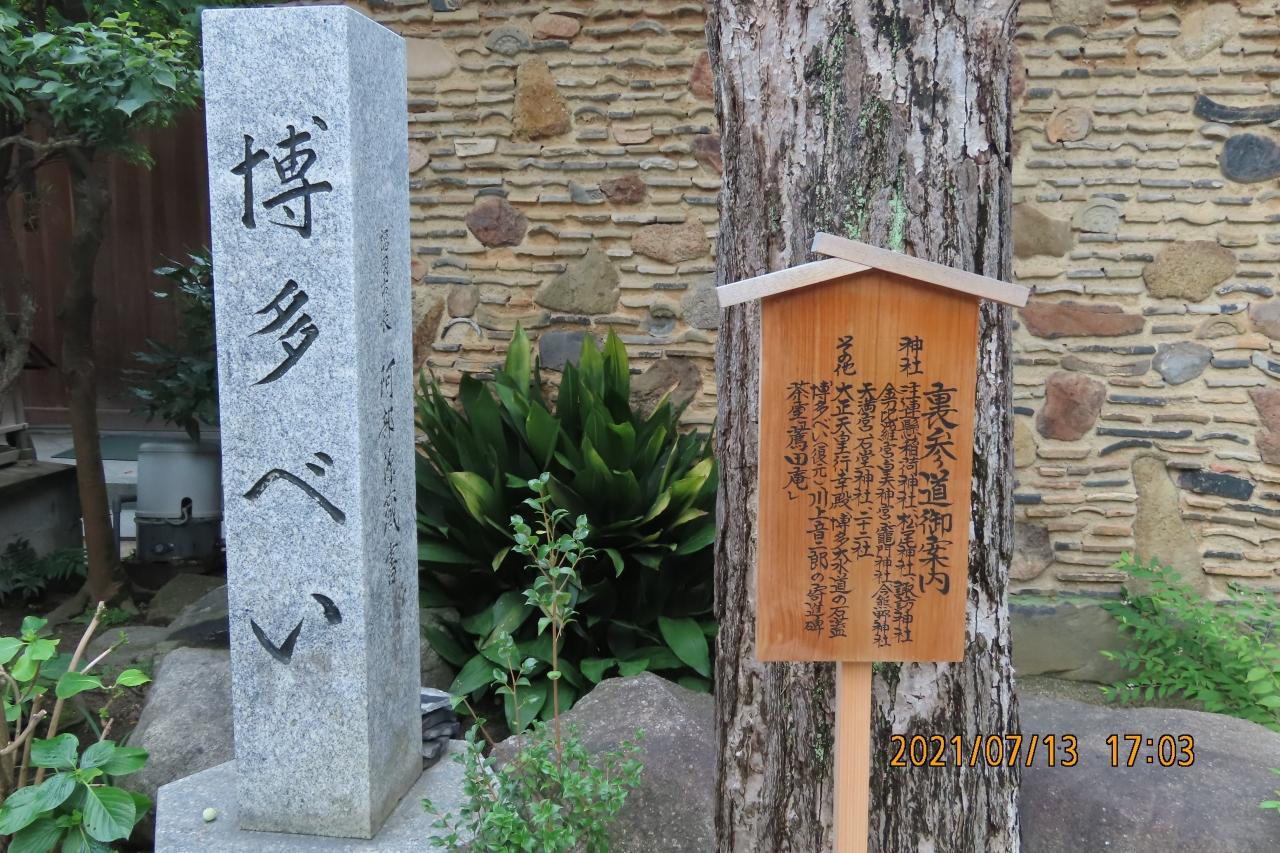 博多べい
裏参道御案内
神社
注連懸稲荷神社、松尾神社、諏訪神社
天満宮、石堂神社、二十二社
その他
大正天皇行幸殿、博多水道の石蓋
博多べい(復元)、川上音二郎の寄進碑
茶室「蔦田庵」
2021/07/13 17:03